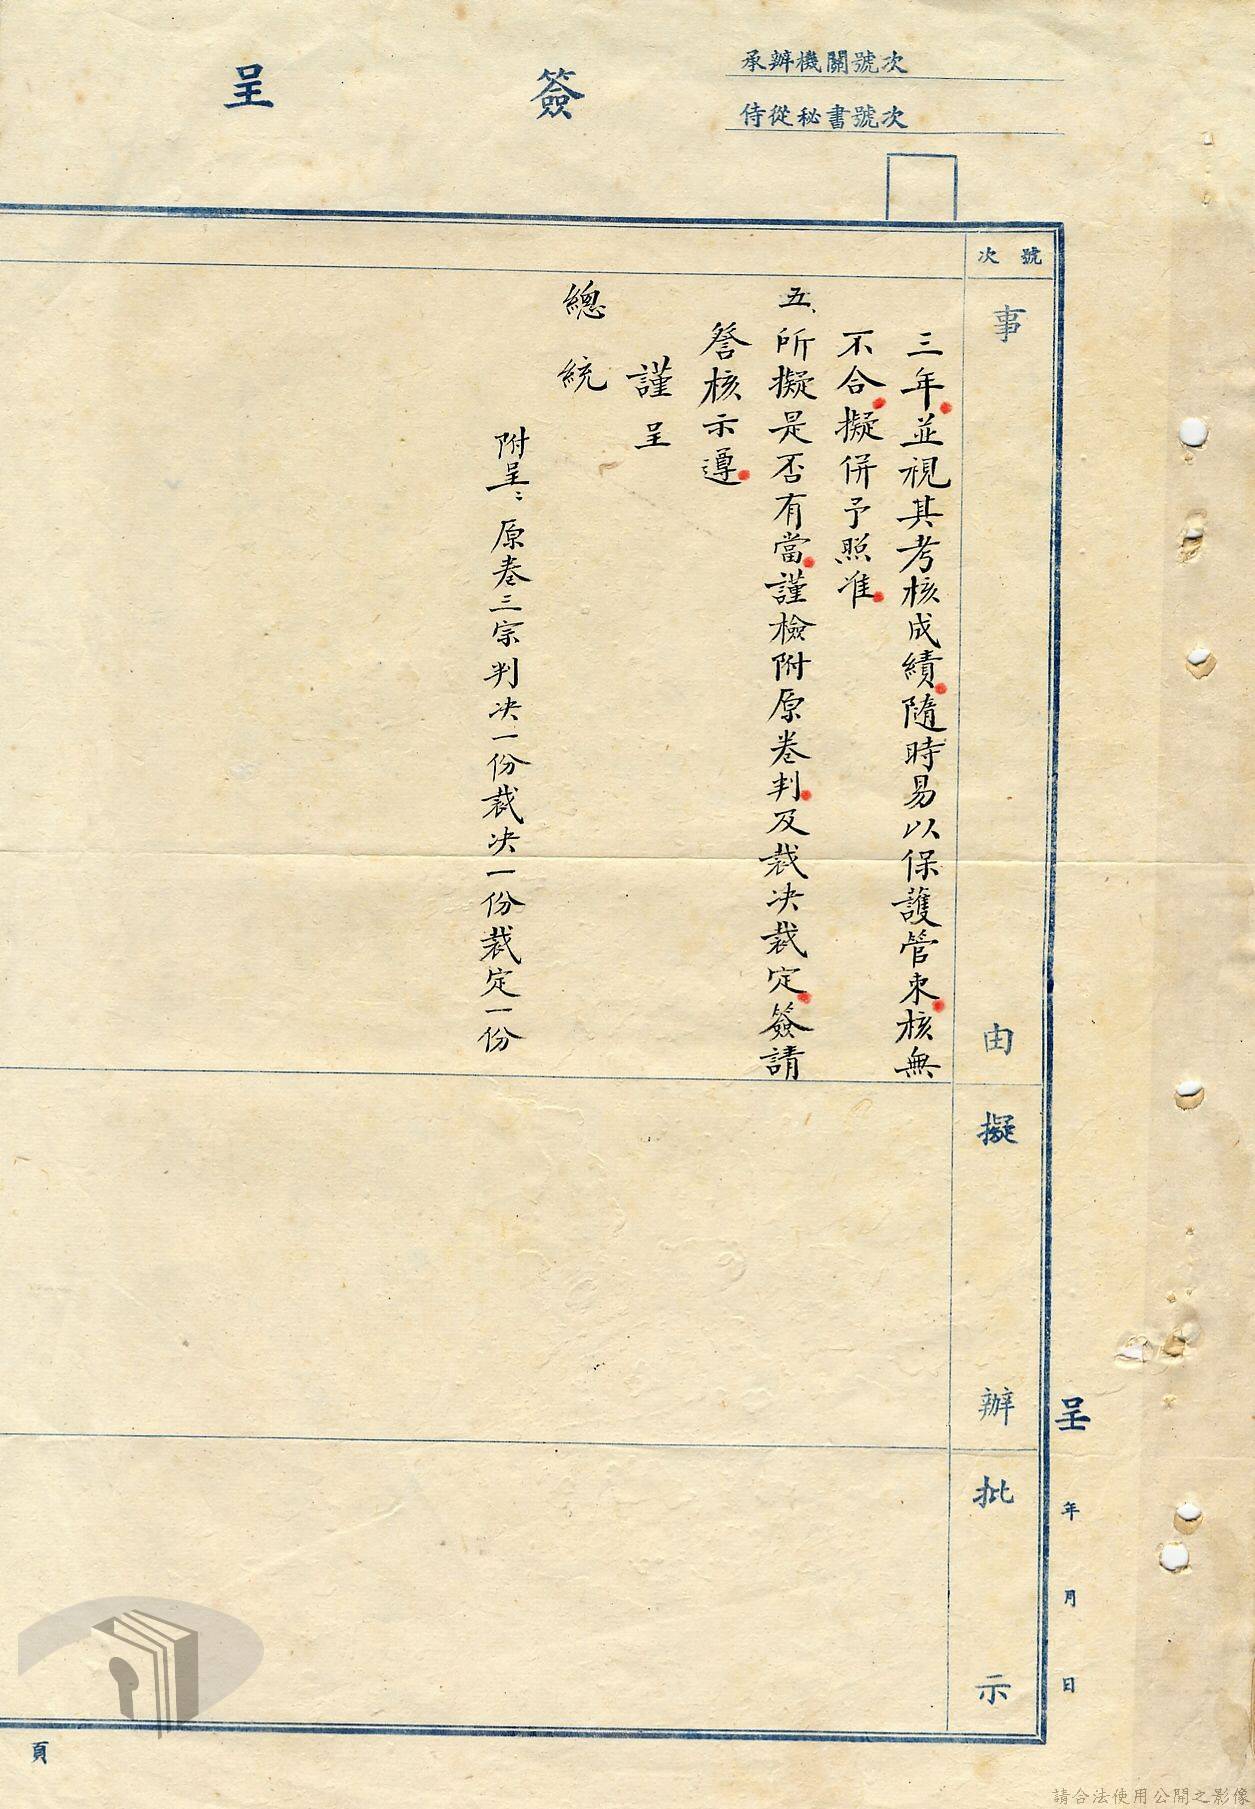 承辦機關號次
侍從秘書號次
簽呈
號次
事由
擬辦
批示
三年並視其考核成績隨時易以保護管束核無
不合擬併予照准
五、所擬是否有當謹檢附原卷判及裁決裁定簽請
詧核示遵
謹呈
總統
附呈：原卷三宗判決一份裁決一份裁定一份
呈 年 月 日
頁
請合法使用公開之影像